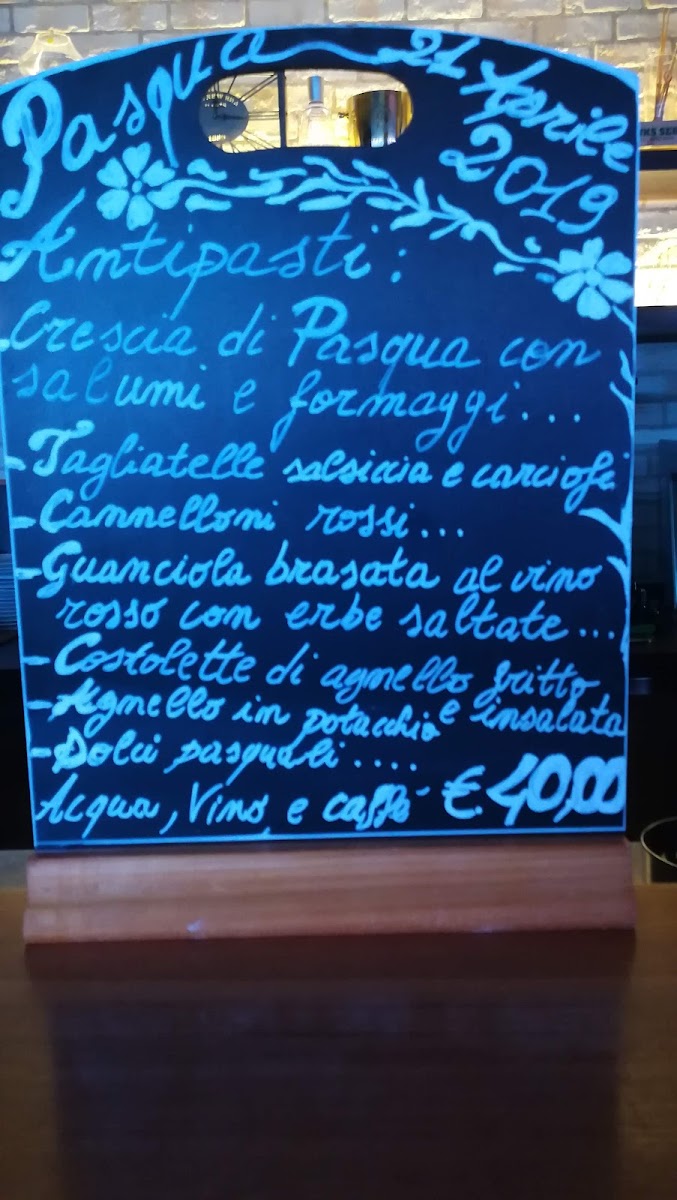 Pasqua 21 Aprile
2019
Antipasti:
-Crescia di Pasqua con
salumi e formaggi...
-Tagliatelle salsiccia e carciofi
-Cannelloni rossi...
-Guanciola brasata al vino
rosso con erbe saltate...
-Costolette di agnello fritto
-Agnello in potacchio e insalata
-Dolci pasquali....
Acqua, Vino e caffè € 40,00